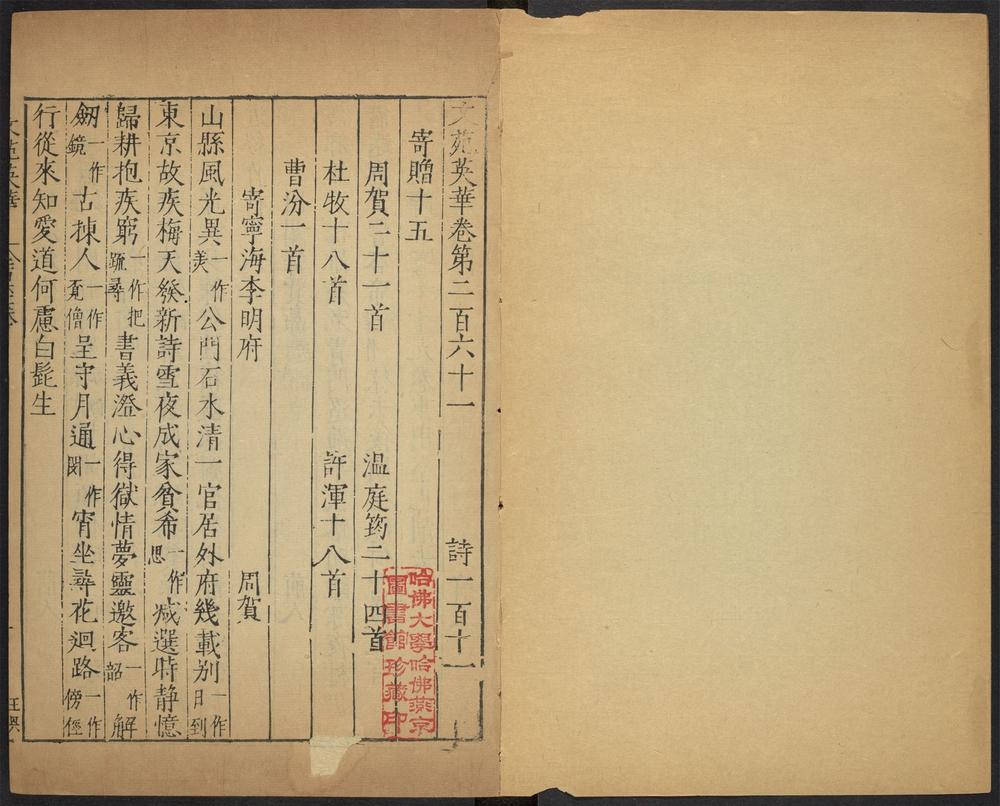 文苑英華卷第二百六十一 詩一百十一
寄贈十五
周賀二十一首 温庭筠二十四首
杜牧十八首 許渾十八首
曹汾一首
寄寧海李明府 周賀
山縣風光異一作美公門石水清一官居外府幾載别一作日到
東京故疾梅天發新詩雪夜成家貧希一作思减選時静憶
歸耕抱疾窮一作把䟽尋書義澄心得獄情夢靈邀客一作韶解
劒一作鏡古揀人一作覓僧呈守月通一作閑宵坐尋花迴路一作傍徑
行從來知愛道何慮白髭生
文苑英華
哈佛大學哈佛燕京
圖書館珍藏印